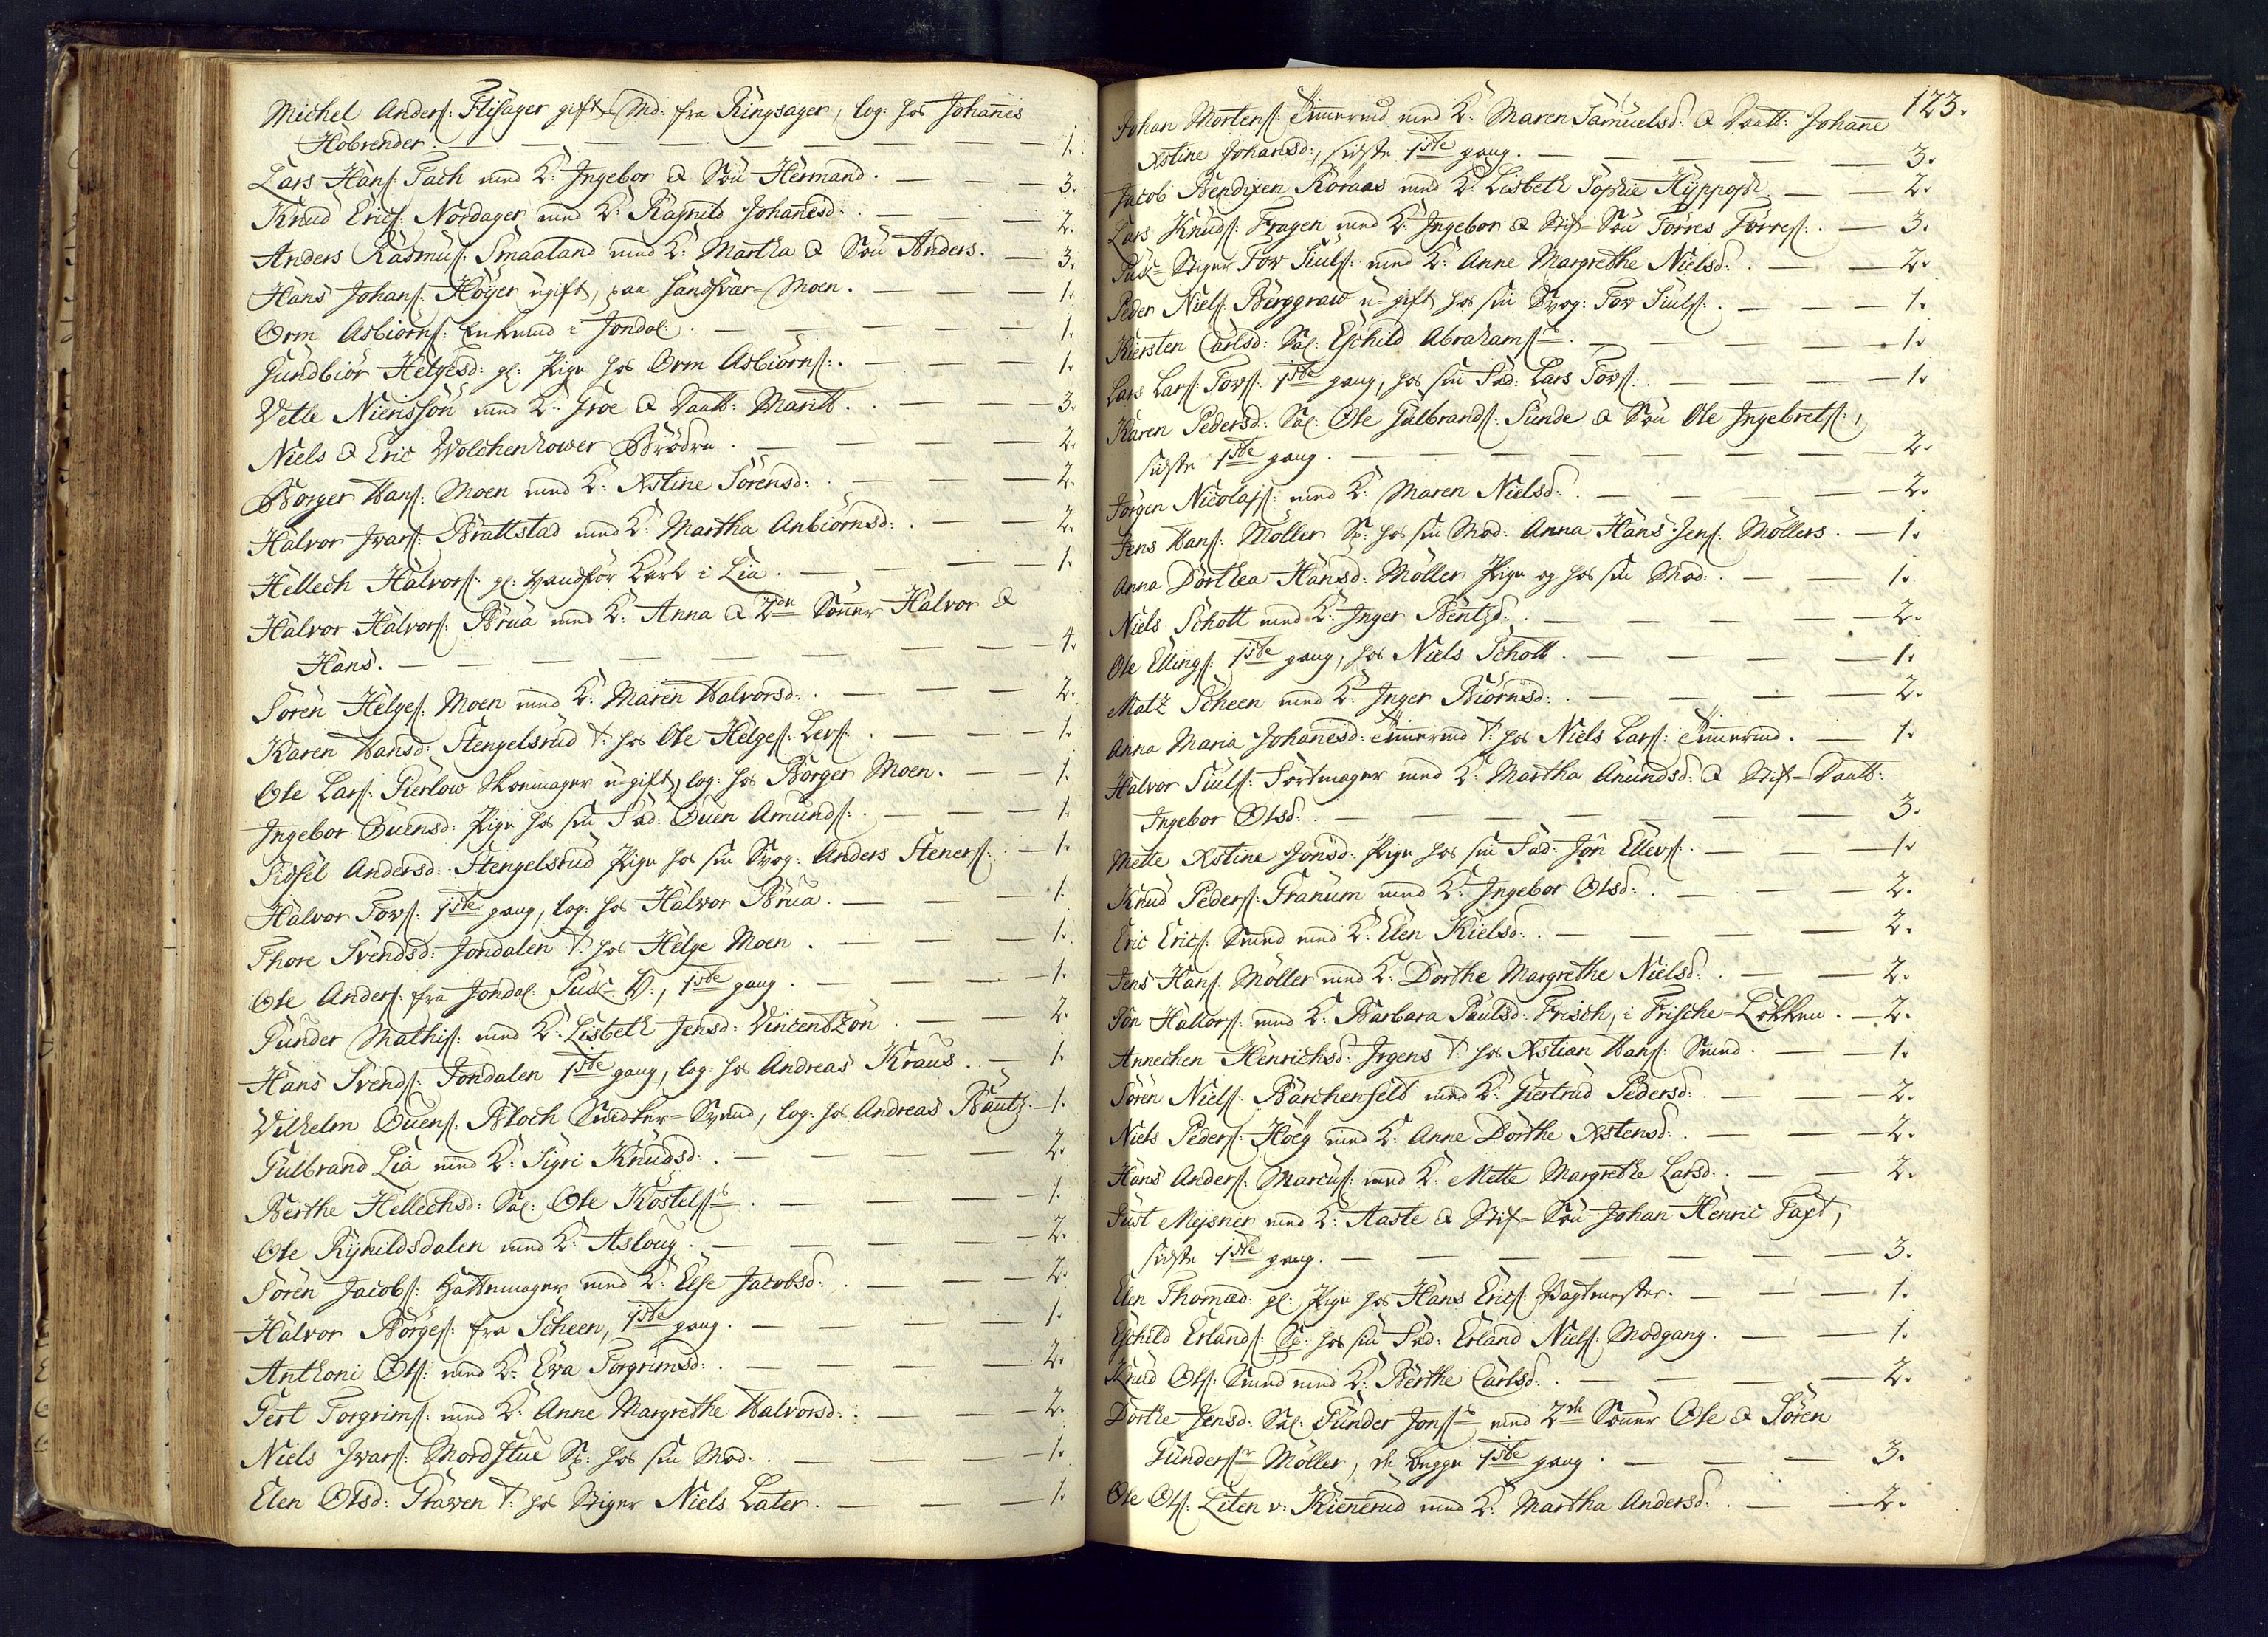 Michel Anders: Flisager gift Md: fra Ringsager, log: hos Johannes
Hobrender. — 1.
Lars Hans: Tach med K: Ingebor & Søn Hermand. — 3.
Knud Erics: Nordager med K: Ragnild Johannesd: — 2.
Anders Rasmus: Smaaland med K: Martha & Søn Anders. — 3.
Hans Johans: Høyer ugift, paa Sandsvær-Moen. — 1.
Orm Asbiørns: Enkemd i Jondal: — 1.
Gundbiør Helgesd: gl: Pige hos Orm Asbiørns: — 1.
Vetle Niensson med K: Groe & Daatt: Maritt. — 3.
Niels & Eric Wolchenhower Brødre. — 2.
Borger Hans: Moen med K: Xstine Sørensd: — 2.
Halvor Ivars: Brattstad med K: Martha Anbiørnsd: — 2.
Hellech Halvors: gl: vandfør Karl i Lia. — 1.
Halvor Halvors: Brua med K: Anna & 2de Sønner Halvor &
Hans. — 4.
Søren Helges: Moen med K: Maren Halvorsd: — 2.
Karen Hansd: Stengelsrud T: hos Ole Helges: Levs: — 1.
Ole Lars: Gierløw Skoemager u-gift, log: hos Børger Moen. — 1.
Ingebor Ouensd: Pige hos sin Fad: Ouen Amunds: — 1.
Sidsel Andersd: Stengelsrud Pige hos sin Svog: Anders Steners: — 1.
Halvor Tovs: 1ste gang, log: hos Halvor Brua. — 1.
Thore Svendsd: Jondalen T: hos Helge Moen. — 1.
Ole Anders: fra Jondal: 1ste gang. — 1.
Gunder Mathis: med K: Lisbeth Jensd: Vincentzøn. — 2.
Hans Svends: Jondalen 1ste gang, log: hos Andreas Kraus. — 1.
Vilhelm Ouens: Bloch Snedker-Svend, log: hos Andreas Bautz. — 1.
Gulbrand Lia med K: Sigri Knudsd: — 2.
Berthe Hellechsd: Sal: Ole Kostels: — 1.
Ole Rynildsdalen med K: Asloug. — 2.
Søren Jacobs: Hattemager med K: Else Jacobsd: — 2.
Halvor Børges: fra Scheen, 1ste gang. — 1.
Anthoni Ols: med K: Eva Torgrimsd: — 2.
Gert Torgrims: med K: Anne Margrethe Halvorsd: — 2.
Niels Ivars: Mordstue Sp: hos sin Mod: — 1.
Elen Olsd: Graven T: hos Stiger Niels Later. — 1.
123.
Johan Mortens: Emmerud med K: Maren Samuelsd: & Daatt: Johanne
Xstine Johansd:, sidste 1ste gang. — 3.
Jacob Bendixen Roraas med K: Lisbeth Sophie Hyppoph: — 2.
Lars Knuds: Fragen med K: Ingebor & Stif-Søn Torres Torres: — 3.
Stiger Tov Siuls: med K: Anne Margrethe Nielsd: — 2.
Peder Niels: Berggraw u-gift hos sin Svog: Tov Siuls: — 1.
Kiersten Carlsd: Sal: Eschild Abrahams: — 1.
Lars Lars: Tovs: 1ste gang, hos sin Fad: Lars Tovs: — 1.
Karen Pedersd: Sal: Ole Gulbrands: Sunde & Søn Ole Ingebrets:,
sidste 1ste gang. — 2.
Jørgen Nicolajs: med K: Maren Nielsd: — 2.
Jens Hans: Møller Sp: hos sin Mod: Anna Hans Jens: Møllers. — 1.
Anna Dorthea Hansd: Møller Pige og hos sin Mod: — 1.
Niels Schott med K: Inger Bentzd: — 2.
Ole Ellings: 1ste gang, hos Niels Schott. — 1.
Matz Scheen med K: Inger Biørnsd: — 2.
Anna Maria Johannesd: Emmerud T: hos Niels Lars: Emmerud. — 1.
Halvor Siuls: Sortmager med K: Martha Anundsd: & Stif-Daatt:
Ingebor Olsd: — 3.
Mette Xstine Jonsd: Pige hos sin Fad: Jon Ellevs: — 1.
Knud Peders: Granum med K: Ingebor Olsd: — 2.
Eric Erics: Smed med K: Elen Kielsd: — 2.
Jens Hans: Møller med K: Dorthe Margrethe Nielsd: — 2.
Jon Hallors: med K: Barbara Paulsd: Frisch, i Frische-Løkken. — 2.
Annechen Henrichsd: Irgens T: hos Xstian Hans: Smed. — 1.
Søren Niels: Barchenfeld med K: Giertrud Pedersd: — 2.
Niels Peders: Høeg med K: Anne Dorthe Xstensd: — 2.
Hans Anders: Marcus: med K: Mette Margrethe Larsd: — 2.
Just Mejsner med K: Aaste & Stif-Søn Johan Henric Faxt,
sidste 1ste gang. — 3.
Elen Thomæd: gl: Pige hos Hans Erics: Vagtmester. — 1.
Eschild Erlands: Sp: hos sin Fad: Erland Niels: Modgang. — 1.
Knud Ols: Smed med K: Berthe Carlsd: — 2.
Dorthe Jensd: Sal: Gunder Jons: med 2de Sønner Ole & Søren
Gunders: Møller, de begge 1ste gang. — 3.
Ole Ols: Liten v: Kiennerud med K: Martha Andersd: — 2.